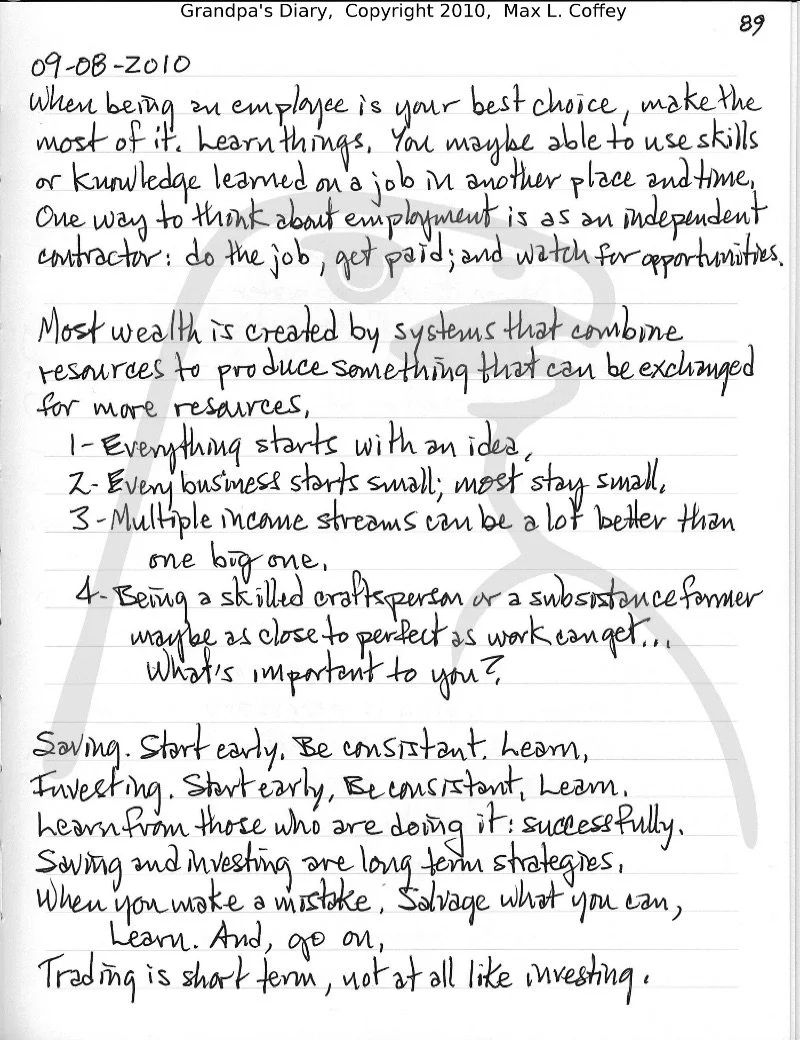 Grandpa's Diary, Copyright 2010, Max L. Coffey
89
09-08-2010
When being an employee is your best choice, make the
most of it. Learn things. You maybe able to use skills
or knowledge learned on a job in another place and time.
One way to think about employment is as an independent
contractor: do the job, get paid; and watch for opportunities.
Most wealth is created by systems that combine
resources to produce something that can be exchanged
for more resources.
1- Everything starts with an idea.
2- Every business starts small; most stay small.
3- Multiple income streams can be a lot better than
one big one.
4- Being a skilled craftsperson or a subsistance farmer
maybe as close to perfect as work can get...
What's important to you?
Saving. Start early. Be consistant. Learn.
Investing. Start early, Be consistant. Learn.
Learn from those who are doing it: successfully.
Saving and investing are long term strategies.
When you make a mistake. Salvage what you can,
Learn. And, go on.
Trading is short term, not at all like investing.